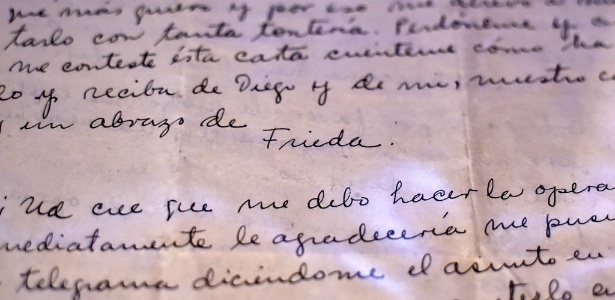 que más quiero y por eso me atrevo a
tarlo con tanta tontería. Perdóneme y
me conteste ésta carta cuénteme cómo ha
y reciba de Diego y de mi, nuestro
un abrazo de
Frieda.
Ud cree que me debo hacer la opera
mediatamente le agradecería me pusi
telegrama diciéndome el asunto en